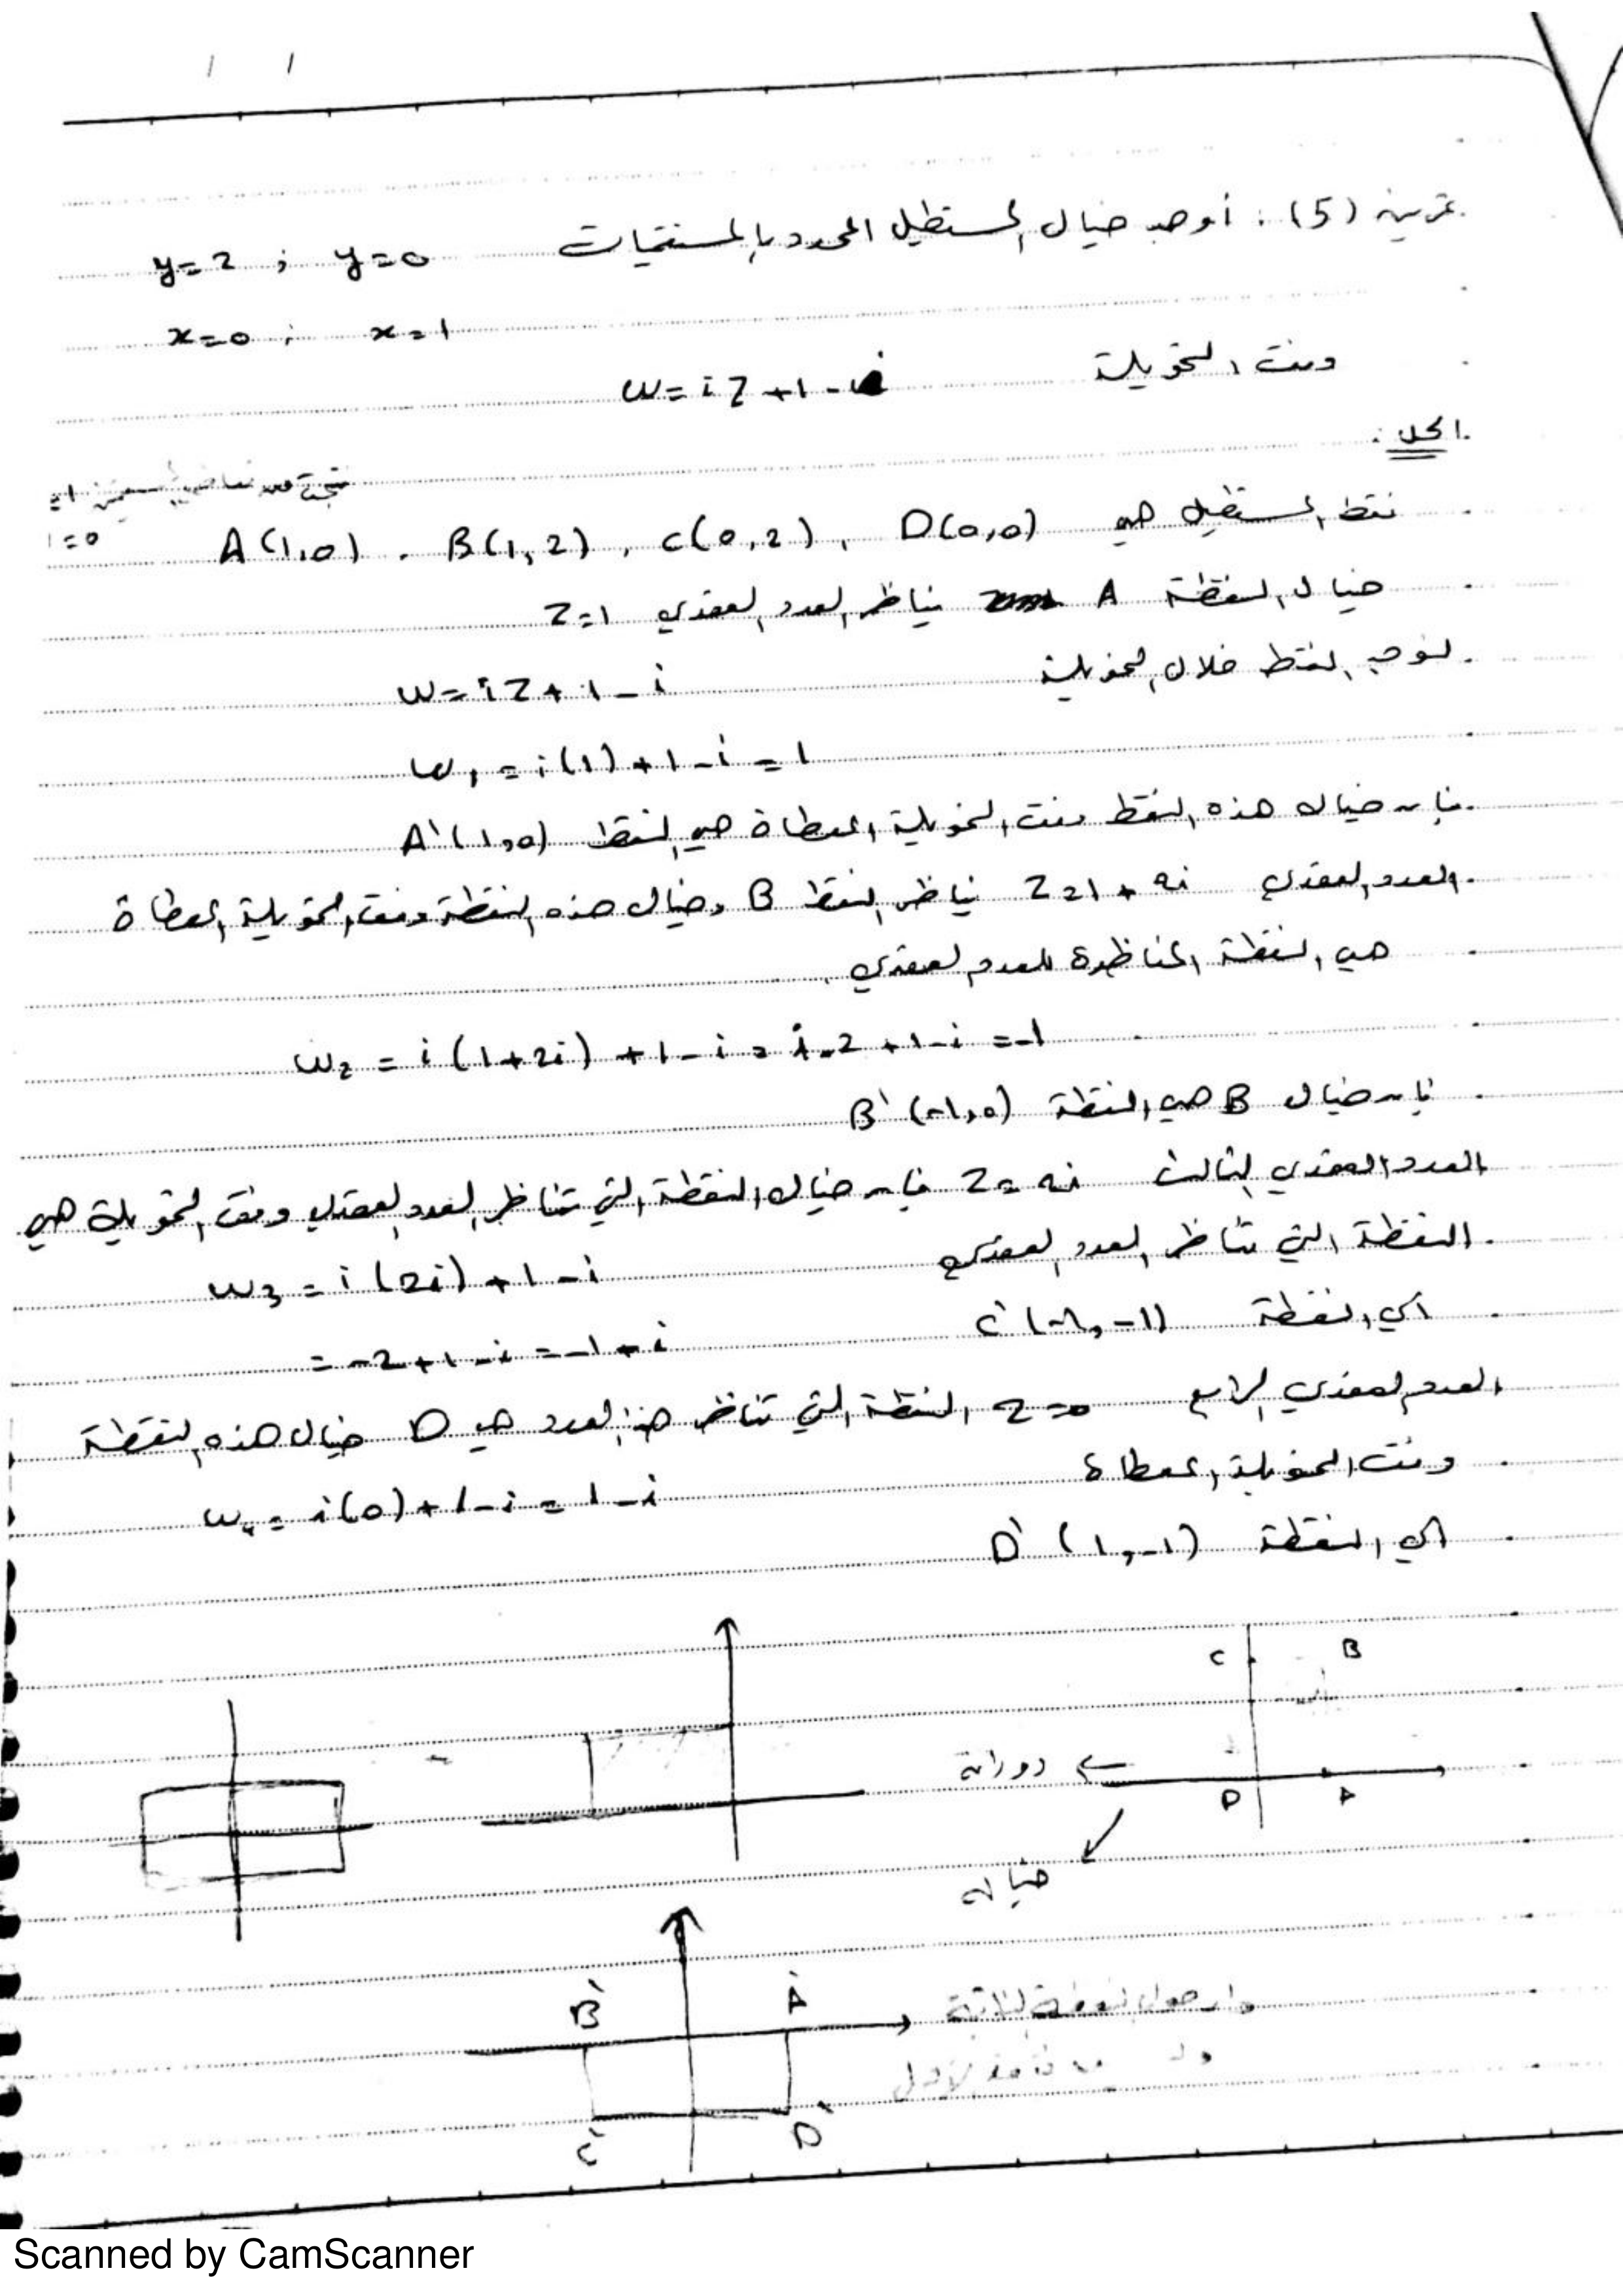 تمرين (5) : أوجد خيال المستطيل المحدد بالمستقيمات y=0 ; y=2
x=0 ; x=1
وفق التحويلة w=iz+1-i
الحل :
نقط المستطيل هي A(1,0) , B(1,2) , C(0,2) , D(0,0)
خيال النقطة A يناظر العدد العقدي z=1
لنوجد النقط خلال التحويلة w=iz+1-i
w₁=i(1)+1-i=1
فإن خيال هذه النقط وفق التحويلة المعطاة هي النقط A'(1,0)
العدد العقدي z=1+2i يناظر النقط B وخيال هذه النقطة وفق التحويلة المعطاة
هي النقطة المناظرة للعدد العقدي
w₂=i(1+2i)+1-i=i-2+1-i=-1
فإن خيال B هي النقطة B'(-1,0)
العدد العقدي الثالث z=2i فإن خيال النقطة التي تناظر العدد العقدي وفق التحويلة هي
النقطة التي تناظر العدد العقدي w₃=i(2i)+1-i
=-2+1-i=-1-i أي النقطة C'(-1,-1)
العدد العقدي الرابع z=0 النقطة التي تناظر هذا العدد هي D خيال هذه النقطة
وفق التحويلة المعطاة w₄=i(0)+1-i=1-i
أي النقطة D'(1,-1)
C B
دورانه
D A
خياله
B' A'
C' D'
Scanned by CamScanner